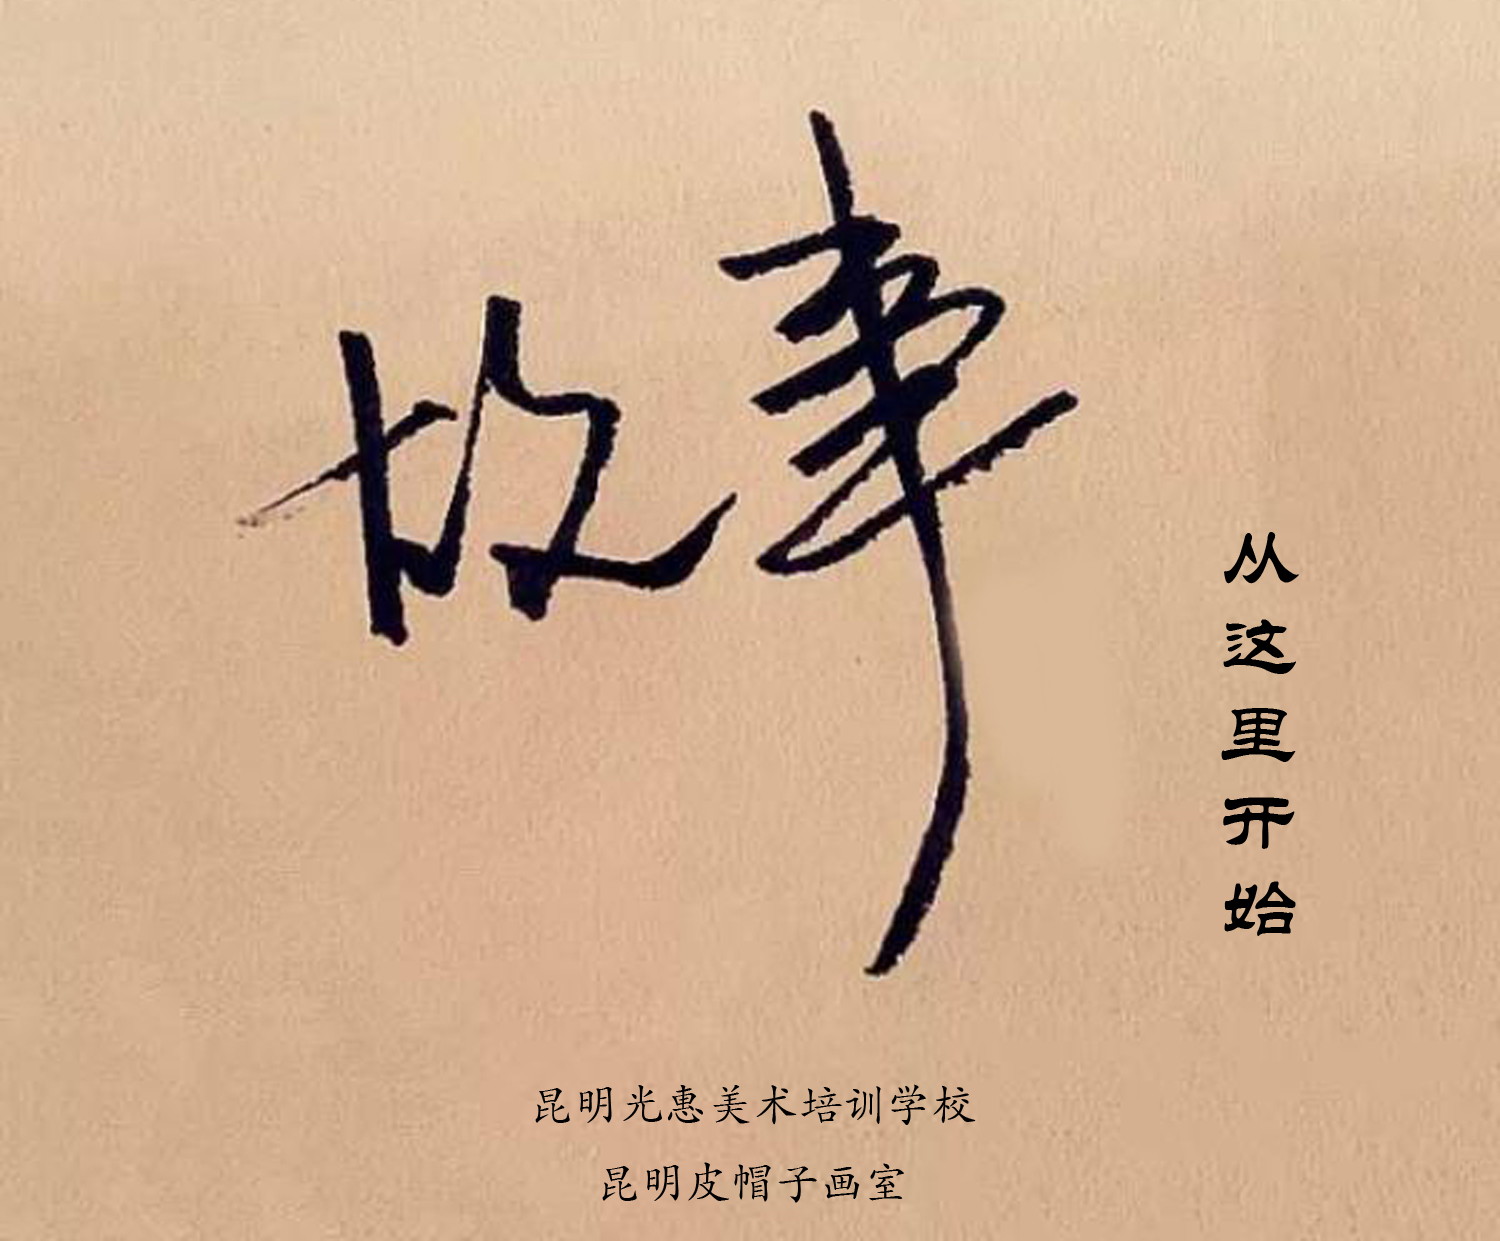 故事
从这里开始
昆明光惠美术培训学校
昆明皮帽子画室